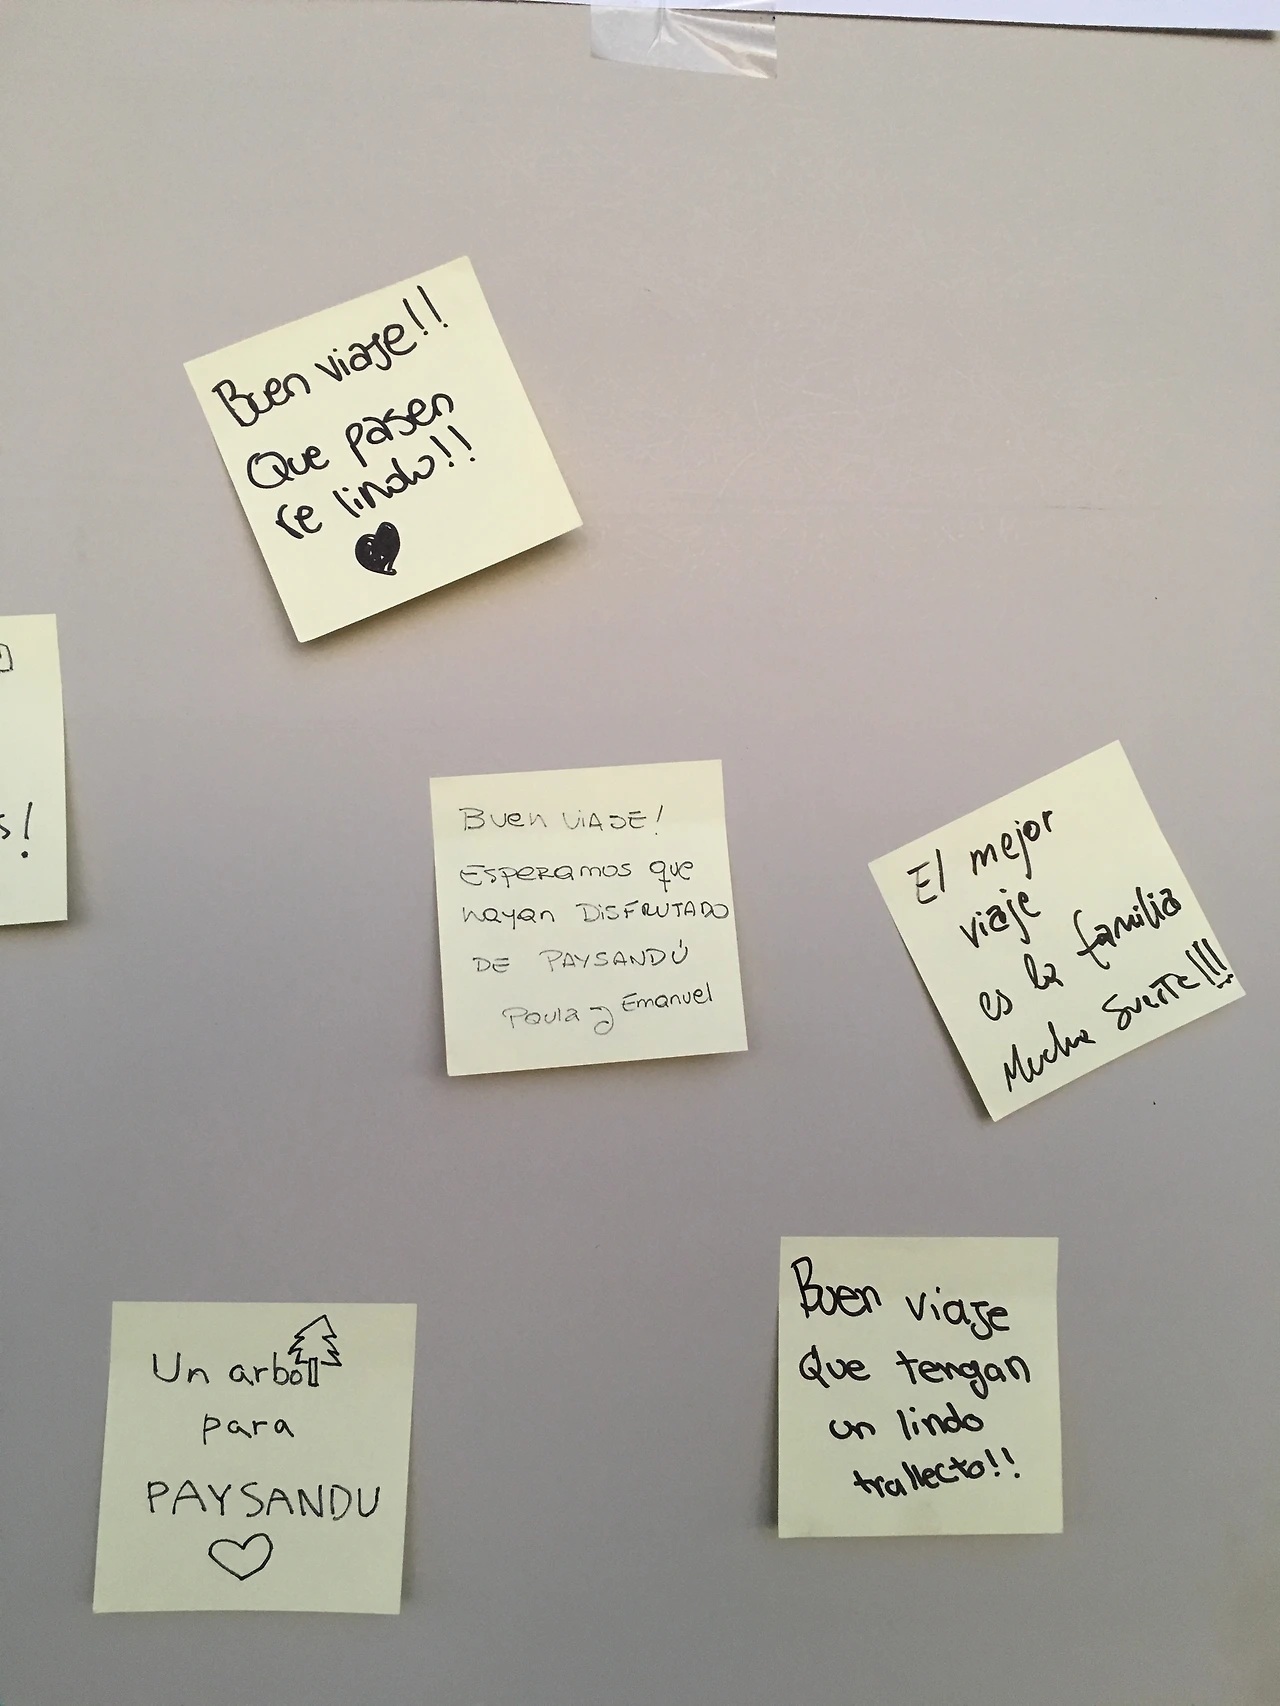 Buen viaje!!
Que pasen
re lindo!!
s!
Buen viaje!
Esperamos que
hayan DISFRUTADO
DE PAYSANDÚ
Paula y Emanuel
El mejor
viaje
es la familia
Mucha Suerte!!!
Un arbol
para
PAYSANDU
Buen viaje
Que tengan
un lindo
trallecto!!